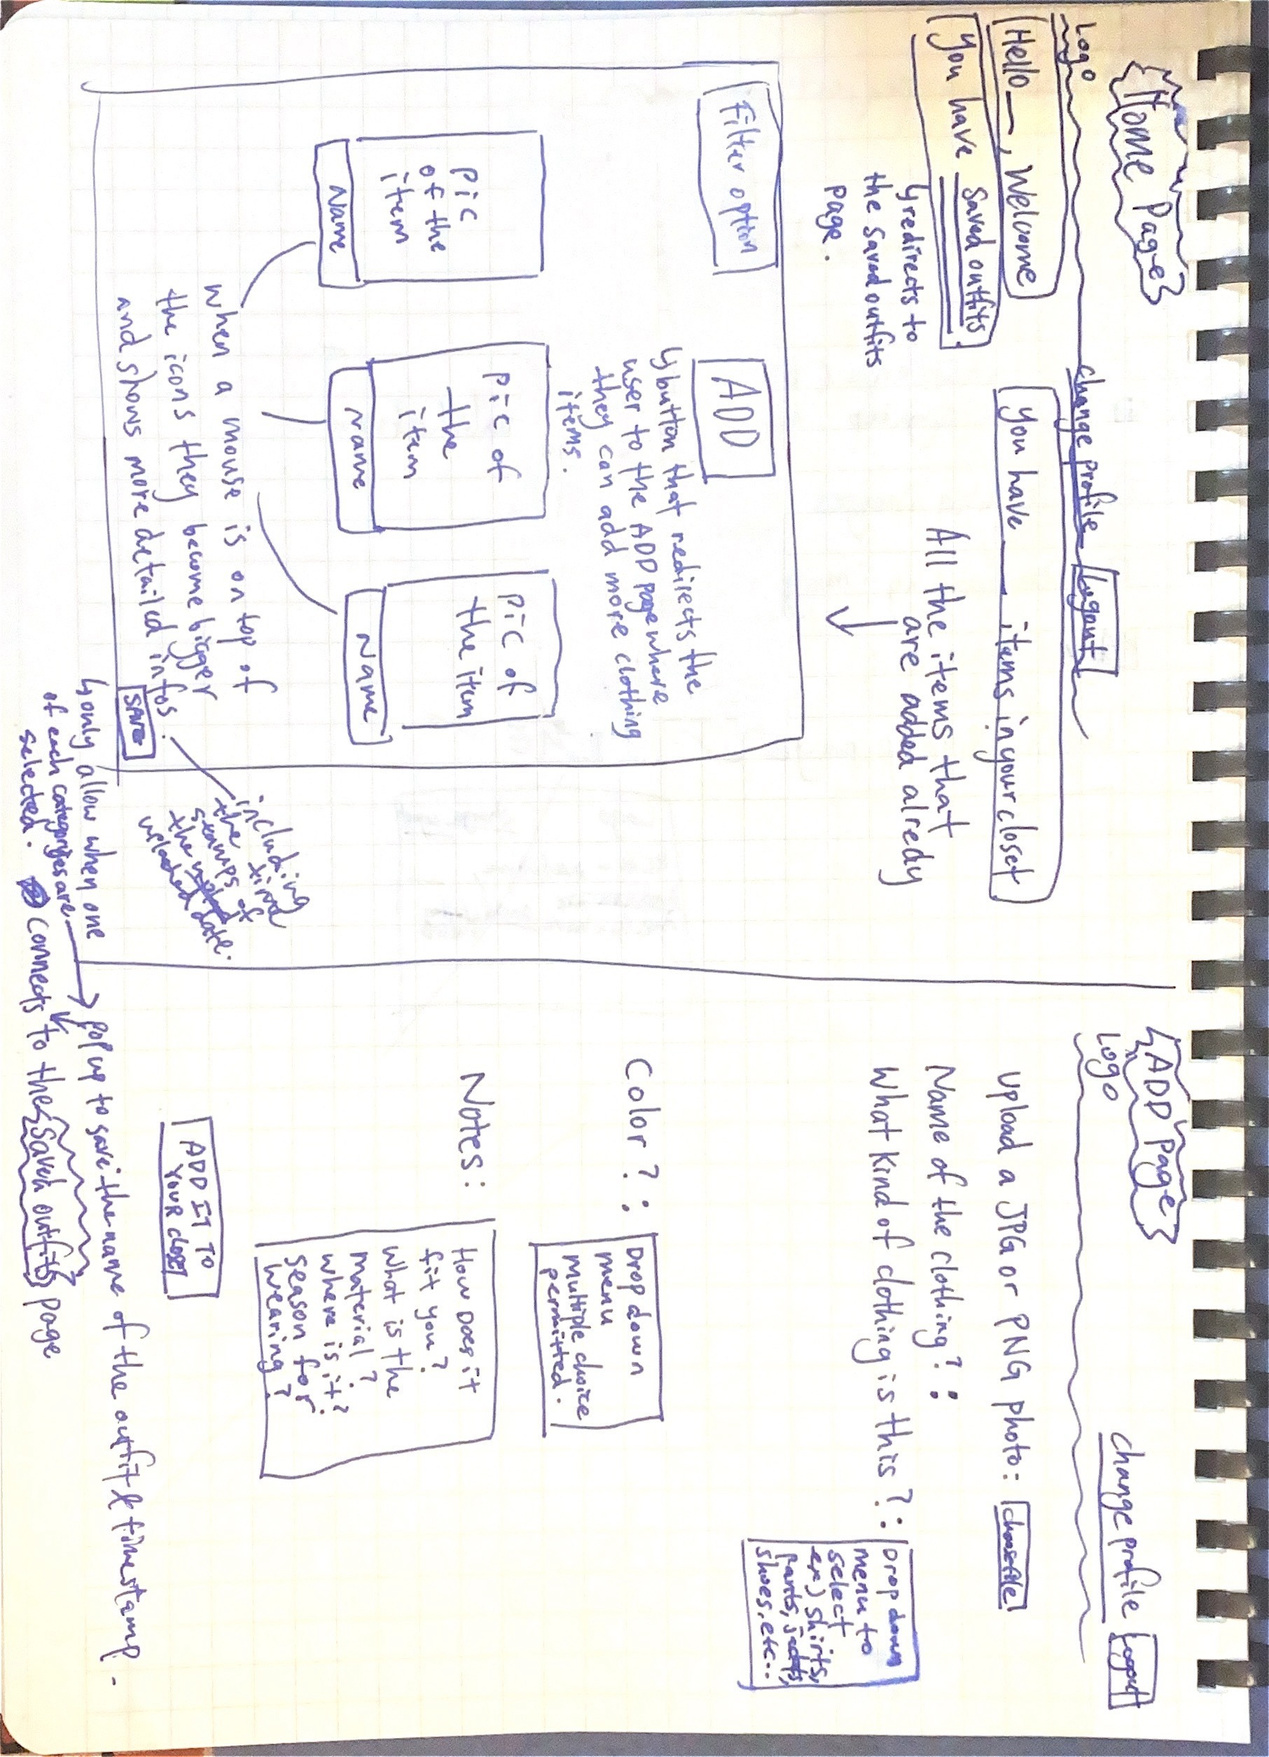 Home Page
Logo
change profile
Logout
Hello__, Welcome
You have __ items in your closet
You have saved outfits.
↳redirects to
the saved outfits
page.
All the items that
are added already
Filter option
ADD
↳button that redirects the
user to the ADD page where
they can add more clothing
items.
Pic
of the
item
Name
Pic of
the
item
Name
Pic of
the item
Name
when a mouse is on top of
the icons they become bigger
and shows more detailed infos.
including
the time
stamps of
the
uploaded date.
SAVE
↳only allow when one
of each categories are
selected.
→ Pop up to save the name of the outfit & timestamp.
Connects to the Saved outfits page
ADD Page
Logo
change profile
Logout
Upload a JPG or PNG photo:
choose file
Name of the clothing?:
What kind of clothing is this?:
Drop down
menu to
select
ex) shirts,
pants,
shoes, etc..
Color?:
Drop down
menu
multiple choice
permitted.
Notes:
How does it
fit you?
What is the
material?
where is it?
season for
wearing?
ADD IT TO
YOUR CLOSET